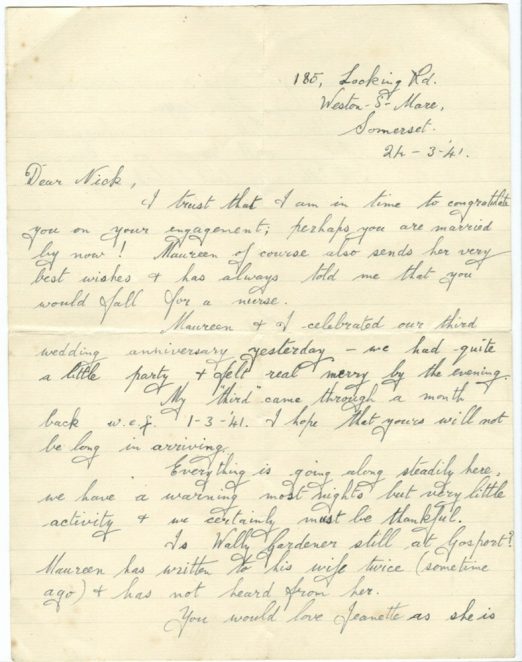 185, Locking Rd.
Weston-S-Mare,
Somerset.
24-3-'41.
Dear Nick,
I trust that I am in time to congratulate
you on your engagement; perhaps you are married
by now! Maureen of course also sends her very
best wishes & has always told me that you
would fall for a nurse.
Maureen & I celebrated our third
wedding anniversary yesterday – we had quite
a little party & felt real merry by the evening.
My "third" came through a month
back w.e.f. 1-3-'41. I hope that yours will not
be long in arriving.
Everything is going along steadily here,
we have a warning most nights but very little
activity & we certainly must be thankful.
Is Wally Gardener still at Gosport?
Maureen has written to his wife twice (sometime
ago) & has not heard from her.
You would love Jeanette as she is